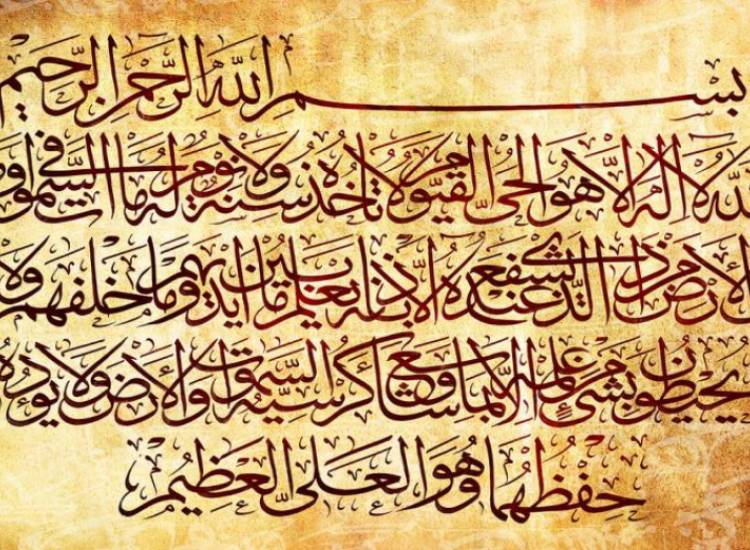 بِسْمِ اللَّهِ الرَّحْمَنِ الرَّحِيمِ
اللَّهُ لَا إِلَهَ إِلَّا هُوَ الْحَيُّ الْقَيُّومُ لَا تَأْخُذُهُ سِنَةٌ وَلَا نَوْمٌ لَهُ مَا فِي السَّمَوَاتِ
الْأَرْضِ مَنْ ذَا الَّذِي يَشْفَعُ عِنْدَهُ إِلَّا بِإِذْنِهِ يَعْلَمُ مَا بَيْنَ أَيْدِيهِمْ وَمَا خَلْفَهُمْ وَلَا
يُحِيطُونَ بِشَيْءٍ مِنْ عِلْمِهِ إِلَّا بِمَا شَاءَ وَسِعَ كُرْسِيُّهُ السَّمَوَاتِ وَالْأَرْضَ وَلَا يَؤُدُهُ
حِفْظُهُمَا وَهُوَ الْعَلِيُّ الْعَظِيمُ